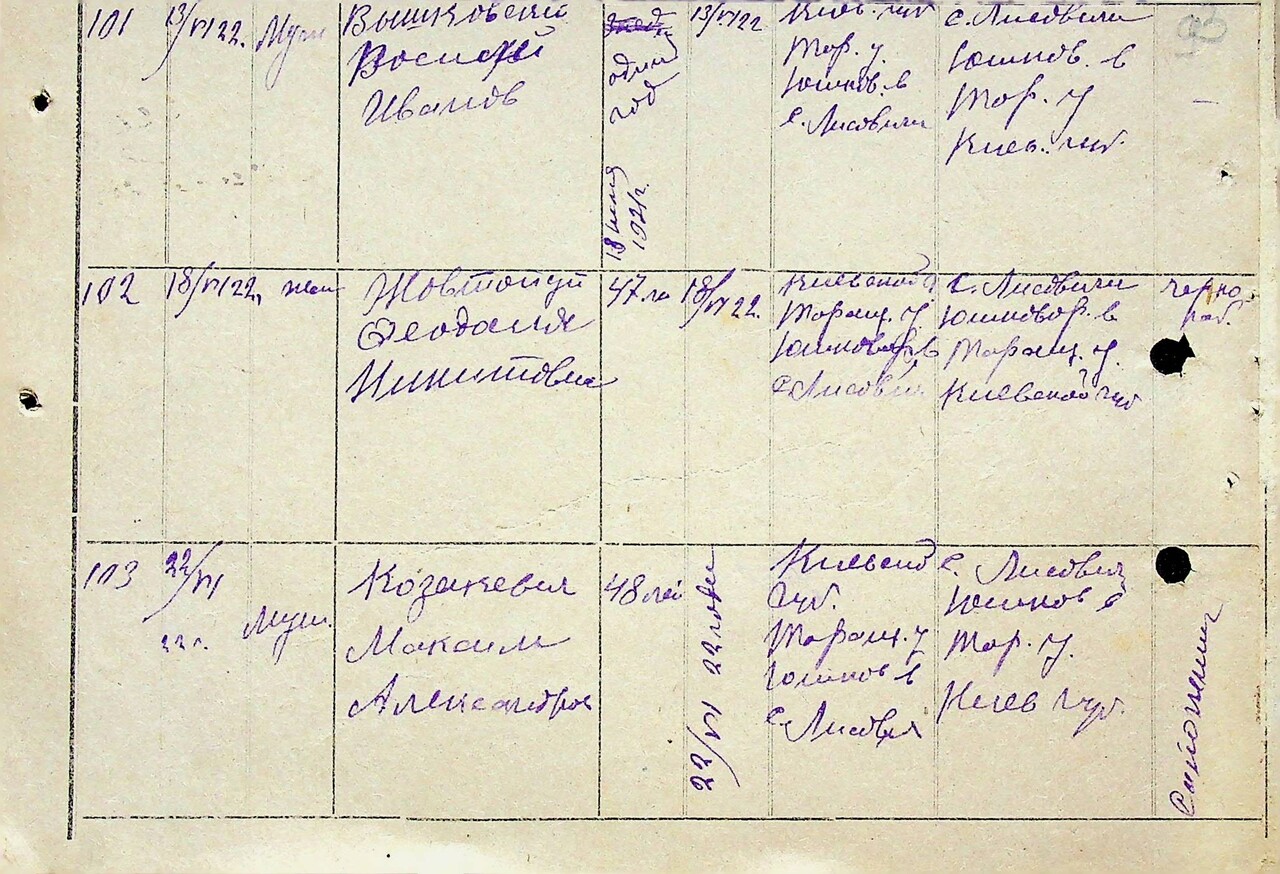 101
13/VI 22.
Муж
Вышковский
Василий
Иванов
один
год
18 июля
1921г.
13/VI 22
Киев. губ
Тар. у
Юшков. в
с. Лисовичи
с. Лисовичи
Юшков. в
Тар. у
Киев. губ.
—
102
18/VI 22,
жен
Жовтопуп
Феодосия
Никитовна
47 ле
18/VI 22.
Киевской г
Таращ. у.
Юшковор. в
с. Лисович.
с. Лисовичи
Юшковор. в
Таращ. у.
Киевской губ
черно
раб.
103
22/VI
22 г.
Муж.
Козакевич
Максим
Александров
48 лет
22/VI 22 года
Киевской
губ.
Таращ. у
Юшков в
с. Лисович
с. Лисович
Юшков в
Тар. у.
Киев губ.